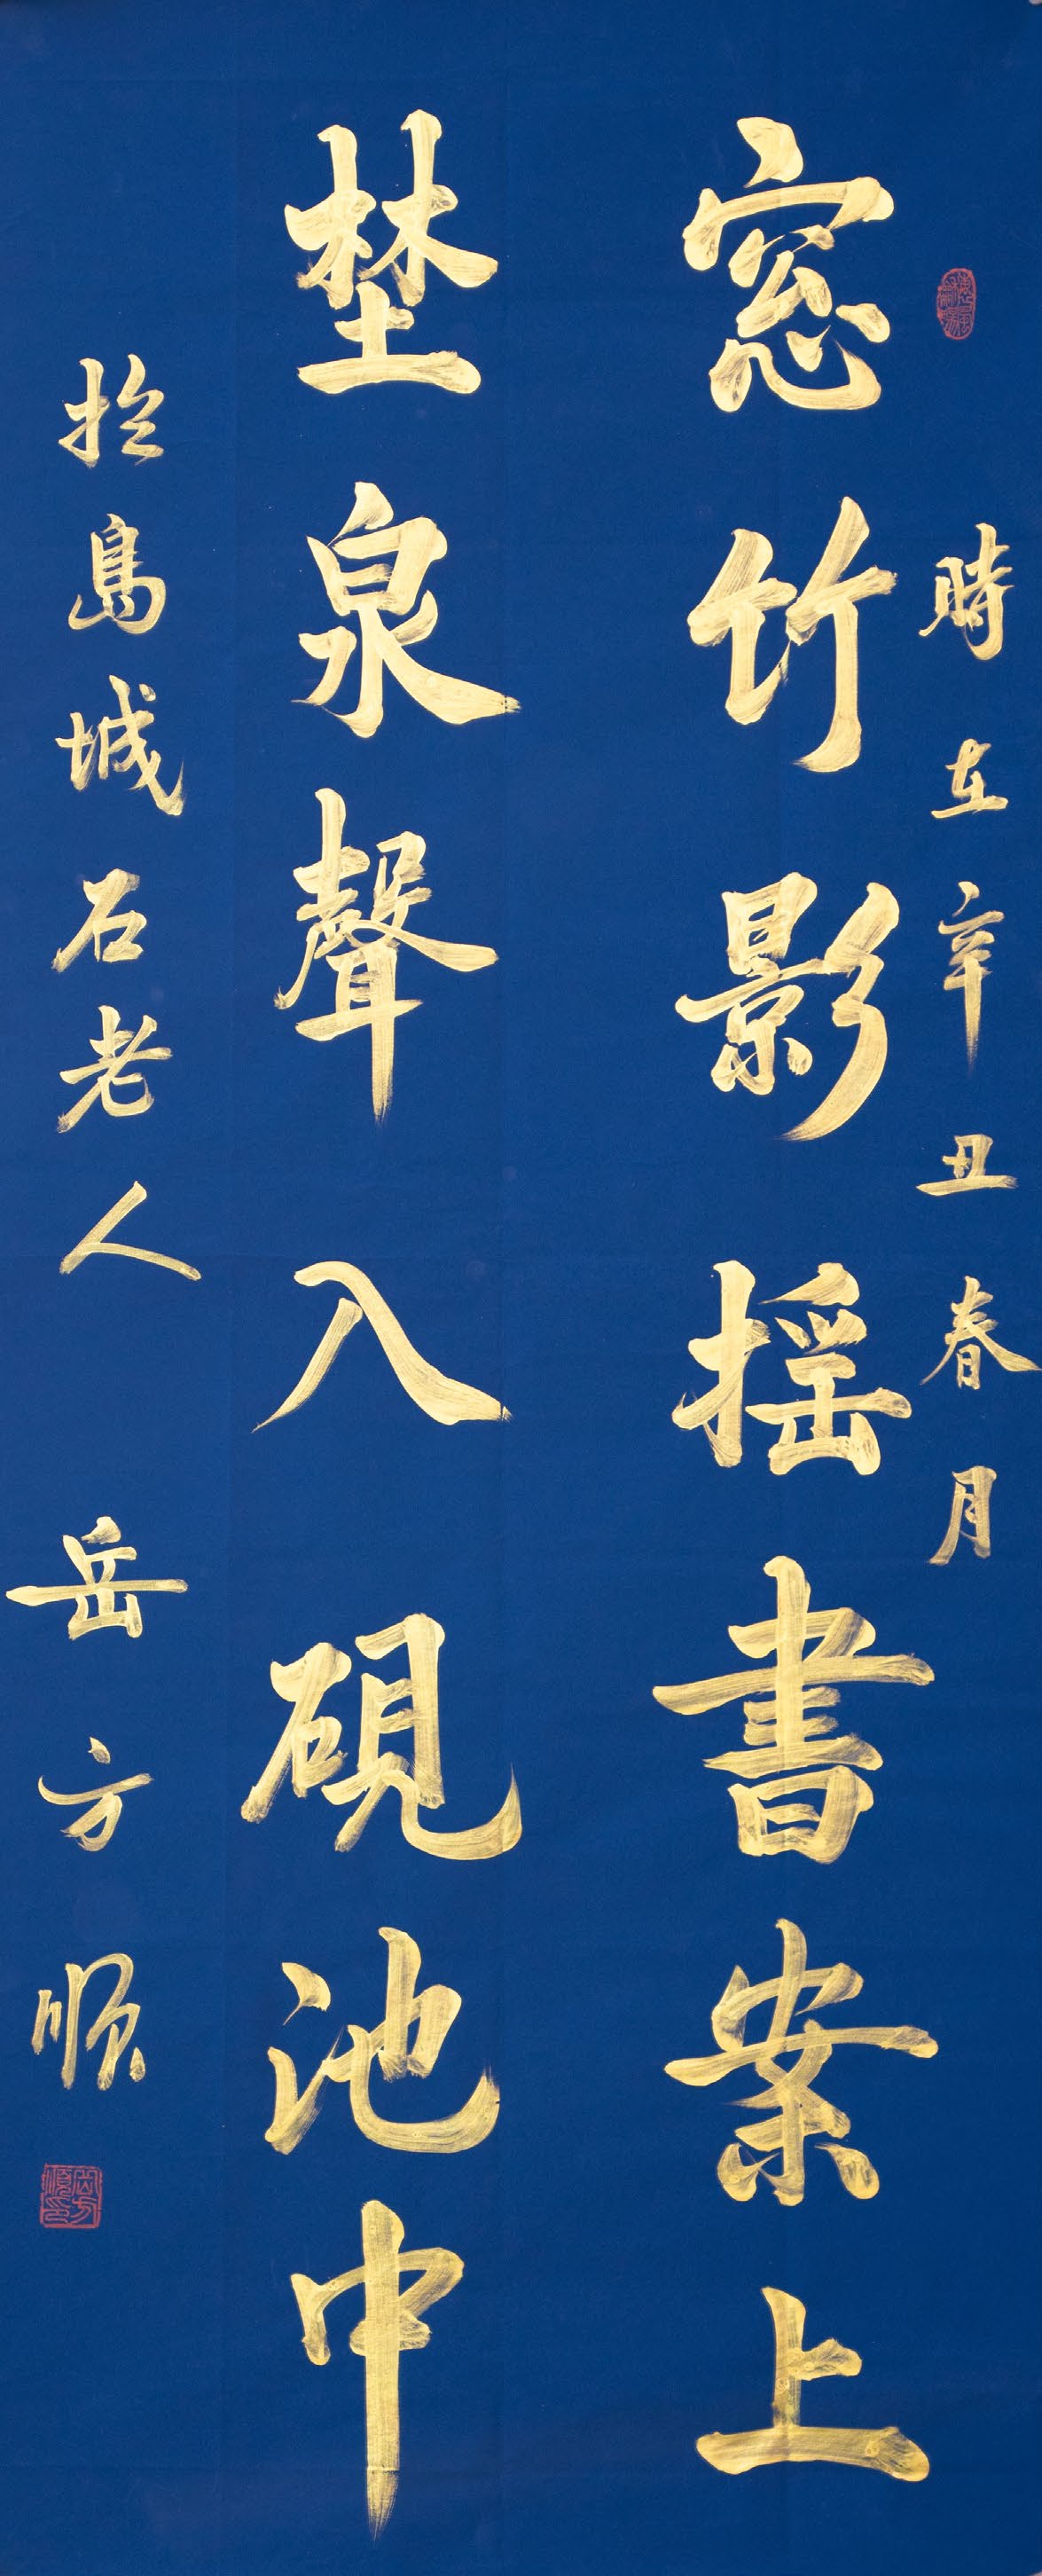 時在辛丑春月
窓竹影揺書案上
埜泉聲入硯池中
於島城石老人 岳方順
岳方順印